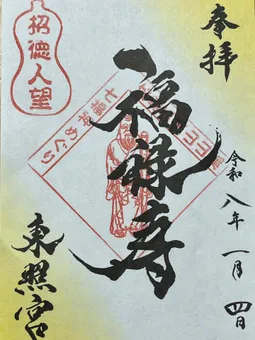 奉拝
令和八年一月四日
福禄寿
東照宮
招徳人望
七福神めぐり